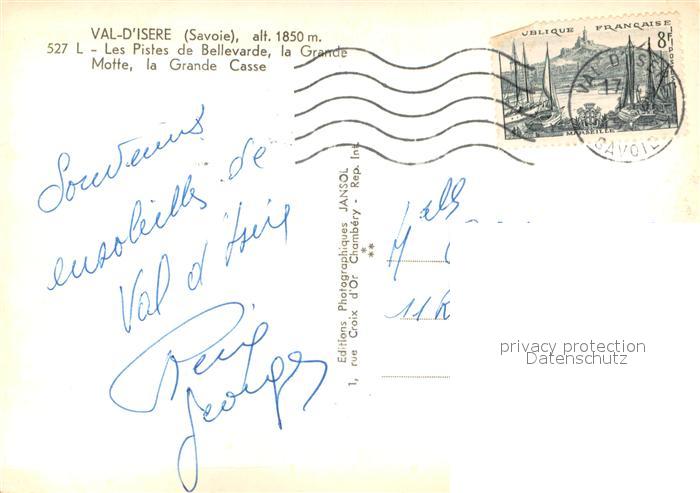 VAL-D'ISERE (Savoie), alt. 1850 m.
527 L - Les Pistes de Bellevarde, la Grande
Motte, la Grande Casse
UBLIQUE FRANÇAISE
8F
POSTES
MARSEILLE
VAL D'ISERE
17
SAVOIE
Souvenirs
ensoleillés de
Val d'Isère
Georges
Editions Photographiques JANSOL
1, rue Croix d'Or Chambéry - Rep. Int.
*
**
11 R
privacy protection
Datenschutz